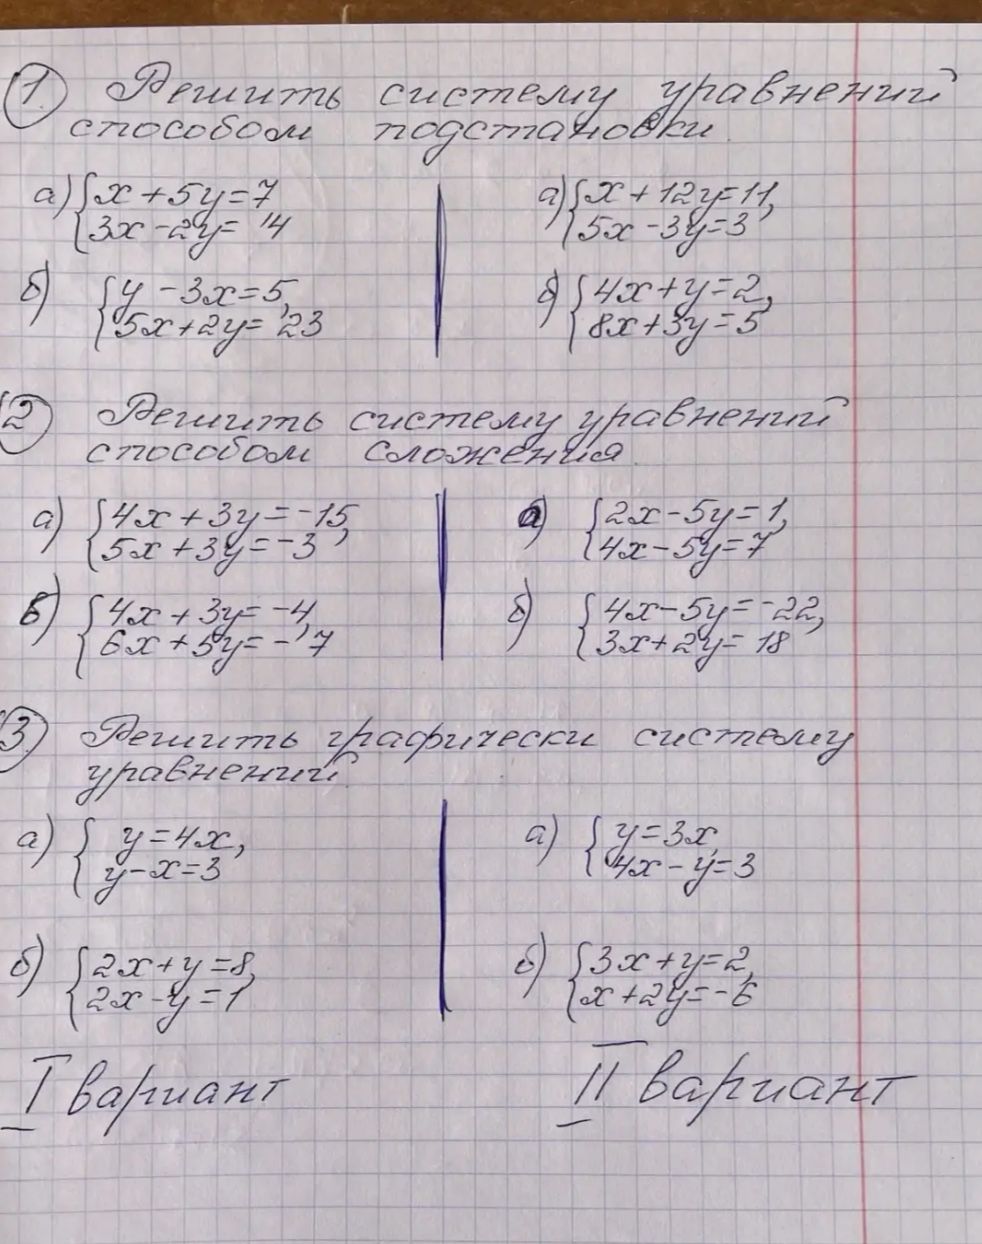 1. Решить систему уравнений
способом подстановки.
а) {x + 5y = 7
3x - 2y = 4
а) {x + 12y = 11,
5x - 3y = 3
б) {y - 3x = 5,
5x + 2y = 23
б) {4x + y = 2,
8x + 3y = 5
2 Решить систему уравнений
способом сложения.
а) {4x + 3y = -15,
5x + 3y = -3
а) {2x - 5y = 1,
4x - 5y = 7
б) {4x + 3y = -4,
6x + 5y = -7
б) {4x - 5y = -22,
3x + 2y = 18
3) Решить графически систему
уравнений
а) {y = 4x,
y - x = 3
а) {y = 3x,
4x - y = 3
б) {2x + y = 8,
2x - y = 1
б) {3x + y = 2,
x + 2y = -6
I вариант
II вариант